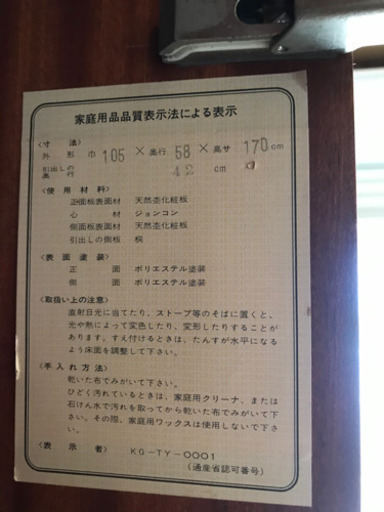 家庭用品品質表示法による表示
〈寸法〉
外形巾 105 × 奥行 58 × 高サ 170 cm
引出しの奥行 42 cm
〈使用材料〉
正面板表面材 天然杢化粧板
心材 ジョンコン
側面板表面材 天然杢化粧板
引出しの側板 桐
〈表面塗装〉
正面 ポリエステル塗装
側面 ポリエステル塗装
〈取扱い上の注意〉
直射日光に当てたり、ストーブ等のそばに置くと、
光や熱によって変色したり、変形したりすることが
あります。すえ付けるときは、たんすが水平になる
よう床面を調整して下さい。
〈手入れ方法〉
乾いた布でみがいて下さい。
ひどく汚れているときは、家庭用クリーナ、または
石けん水で汚れを取ってから乾いた布でみがいて下
さい。その際、家庭用ワックスは使用しないで下さ
い。
〈表示者〉 KG-TY-0001
(通産省認可番号)